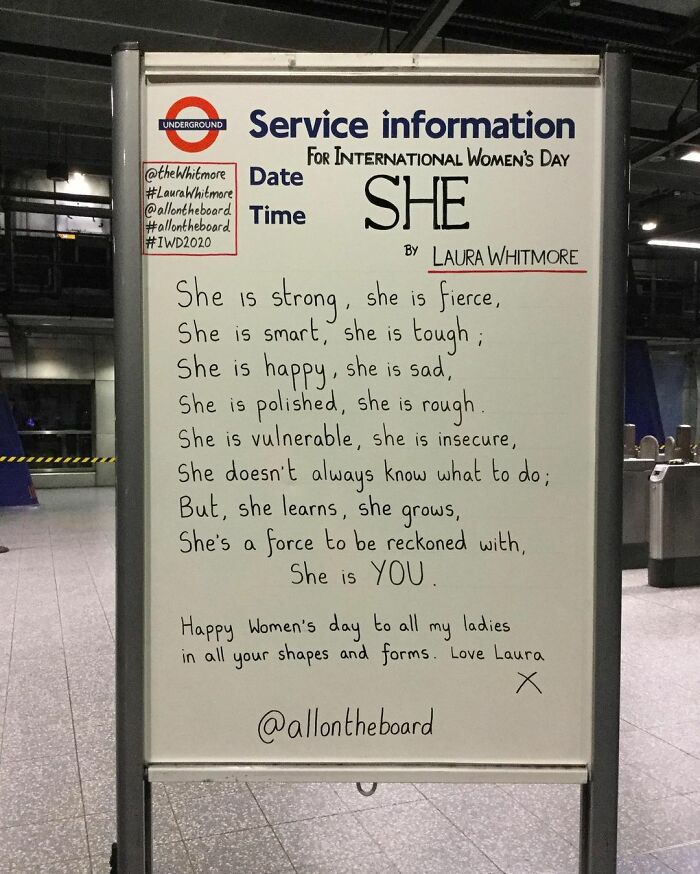 UNDERGROUND
Service information
FOR INTERNATIONAL WOMEN'S DAY
@theWhitmore
#LauraWhitmore
@allontheboard
#allontheboard
#IWD2020
Date
Time
SHE
BY LAURA WHITMORE
She is strong, she is fierce,
She is smart, she is tough;
She is happy, she is sad,
She is polished, she is rough.
She is vulnerable, she is insecure,
She doesn't always know what to do;
But, she learns, she grows,
She's a force to be reckoned with,
She is YOU.
Happy Women's day to all my ladies
in all your shapes and forms. Love Laura
X
@allontheboard